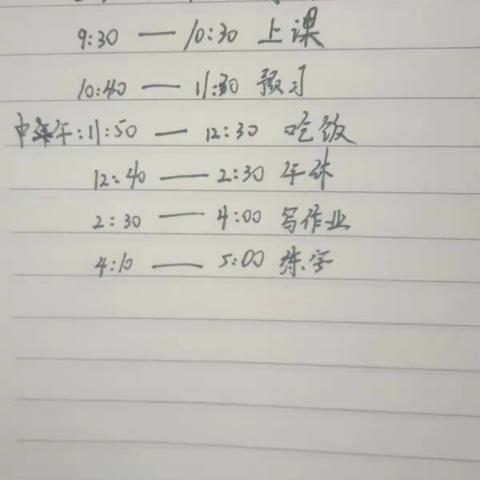 9:30 — 10:30 上课
10:40 — 11:30 预习
中午:11:50 — 12:30 吃饭
12:40 — 2:30 午休
2:30 — 4:00 写作业
4:10 — 5:00 练字